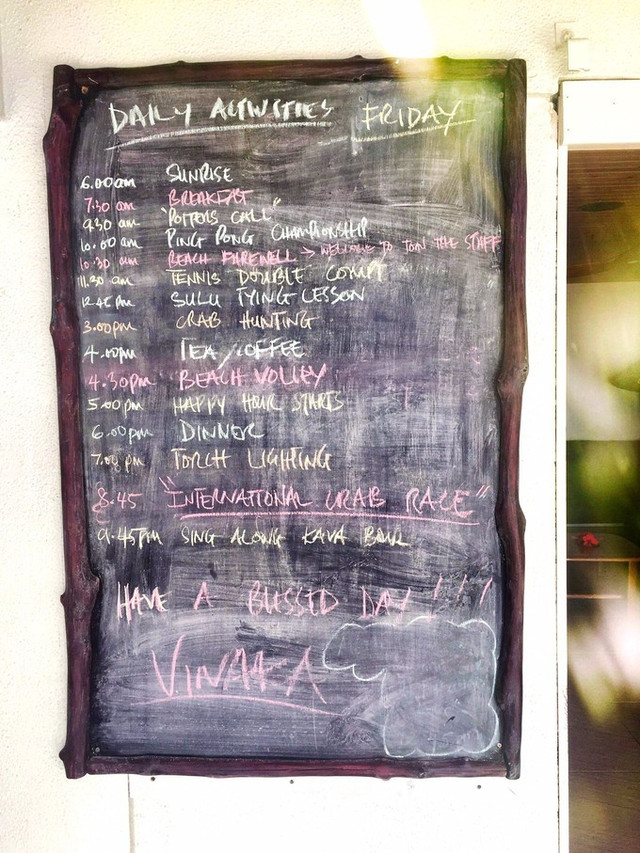 DAILY ACTIVITIES FRIDAY
6.00am SUNRISE
7.30 am BREAKFAST
9.30 am "POITERS CALL"
10.00 am PING PONG CHAMPIONSHIP
10.30 am BEACH FAREWELL → WELCOME TO JOIN THE STAFF
11.30 am TENNIS DOUBLE COMPT
12.45 pm SULU TYING LESSON
3.00pm CRAB HUNTING
4.00pm TEA/COFFEE
4.30pm BEACH VOLLEY
5.00pm HAPPY HOUR STARTS
6.00pm DINNER
7.00pm TORCH LIGHTING
8.45 "INTERNATIONAL CRAB RACE"
9.45PM SING ALONG KAVA BOWL
HAVE A BLESSED DAY !!!
VINAKA